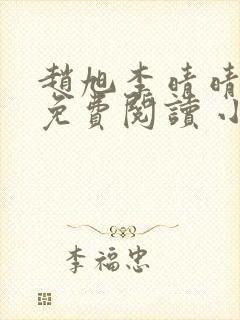 趙旭李晴晴
免費閱讀小
李福忠